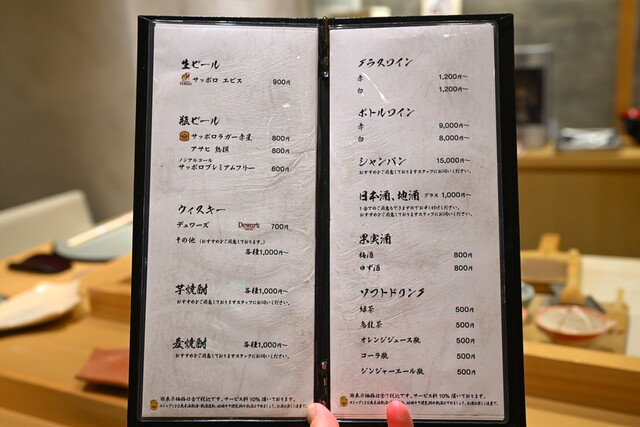 生ビール
サッポロ エビス 900円
瓶ビール
サッポロラガー赤星 800円
アサヒ 熟撰 800円
ノンアルコール
サッポロプレミアムフリー 600円
ウィスキー
デュワーズ Dewar's 700円
その他（おすすめをご用意しております。）
各種1,000円〜
芋焼酎 各種1,000円〜
おすすめをご用意しておりますスタッフにお伺いください。
麦焼酎 各種1,000円〜
おすすめをご用意しておりますスタッフにお伺いください。
※表示価格は全て税込です。サービス料 10% 頂いております。
グラスワイン
赤 1,200円〜
白 1,200円〜
ボトルワイン
赤 9,000円〜
白 8,000円〜
シャンパン 15,000円〜
おすすめをご用意しておりますスタッフにお伺いください。
日本酒、地酒 グラス 1,000円〜
おすすめをご用意しておりますスタッフにお伺いください。
果実酒
梅酒 800円
ゆず酒 800円
ソフトドリンク
緑茶 500円
烏龍茶 500円
オレンジジュース瓶 500円
コーラ瓶 500円
ジンジャーエール瓶 500円
※表示価格は全て税込です。サービス料 10% 頂いております。